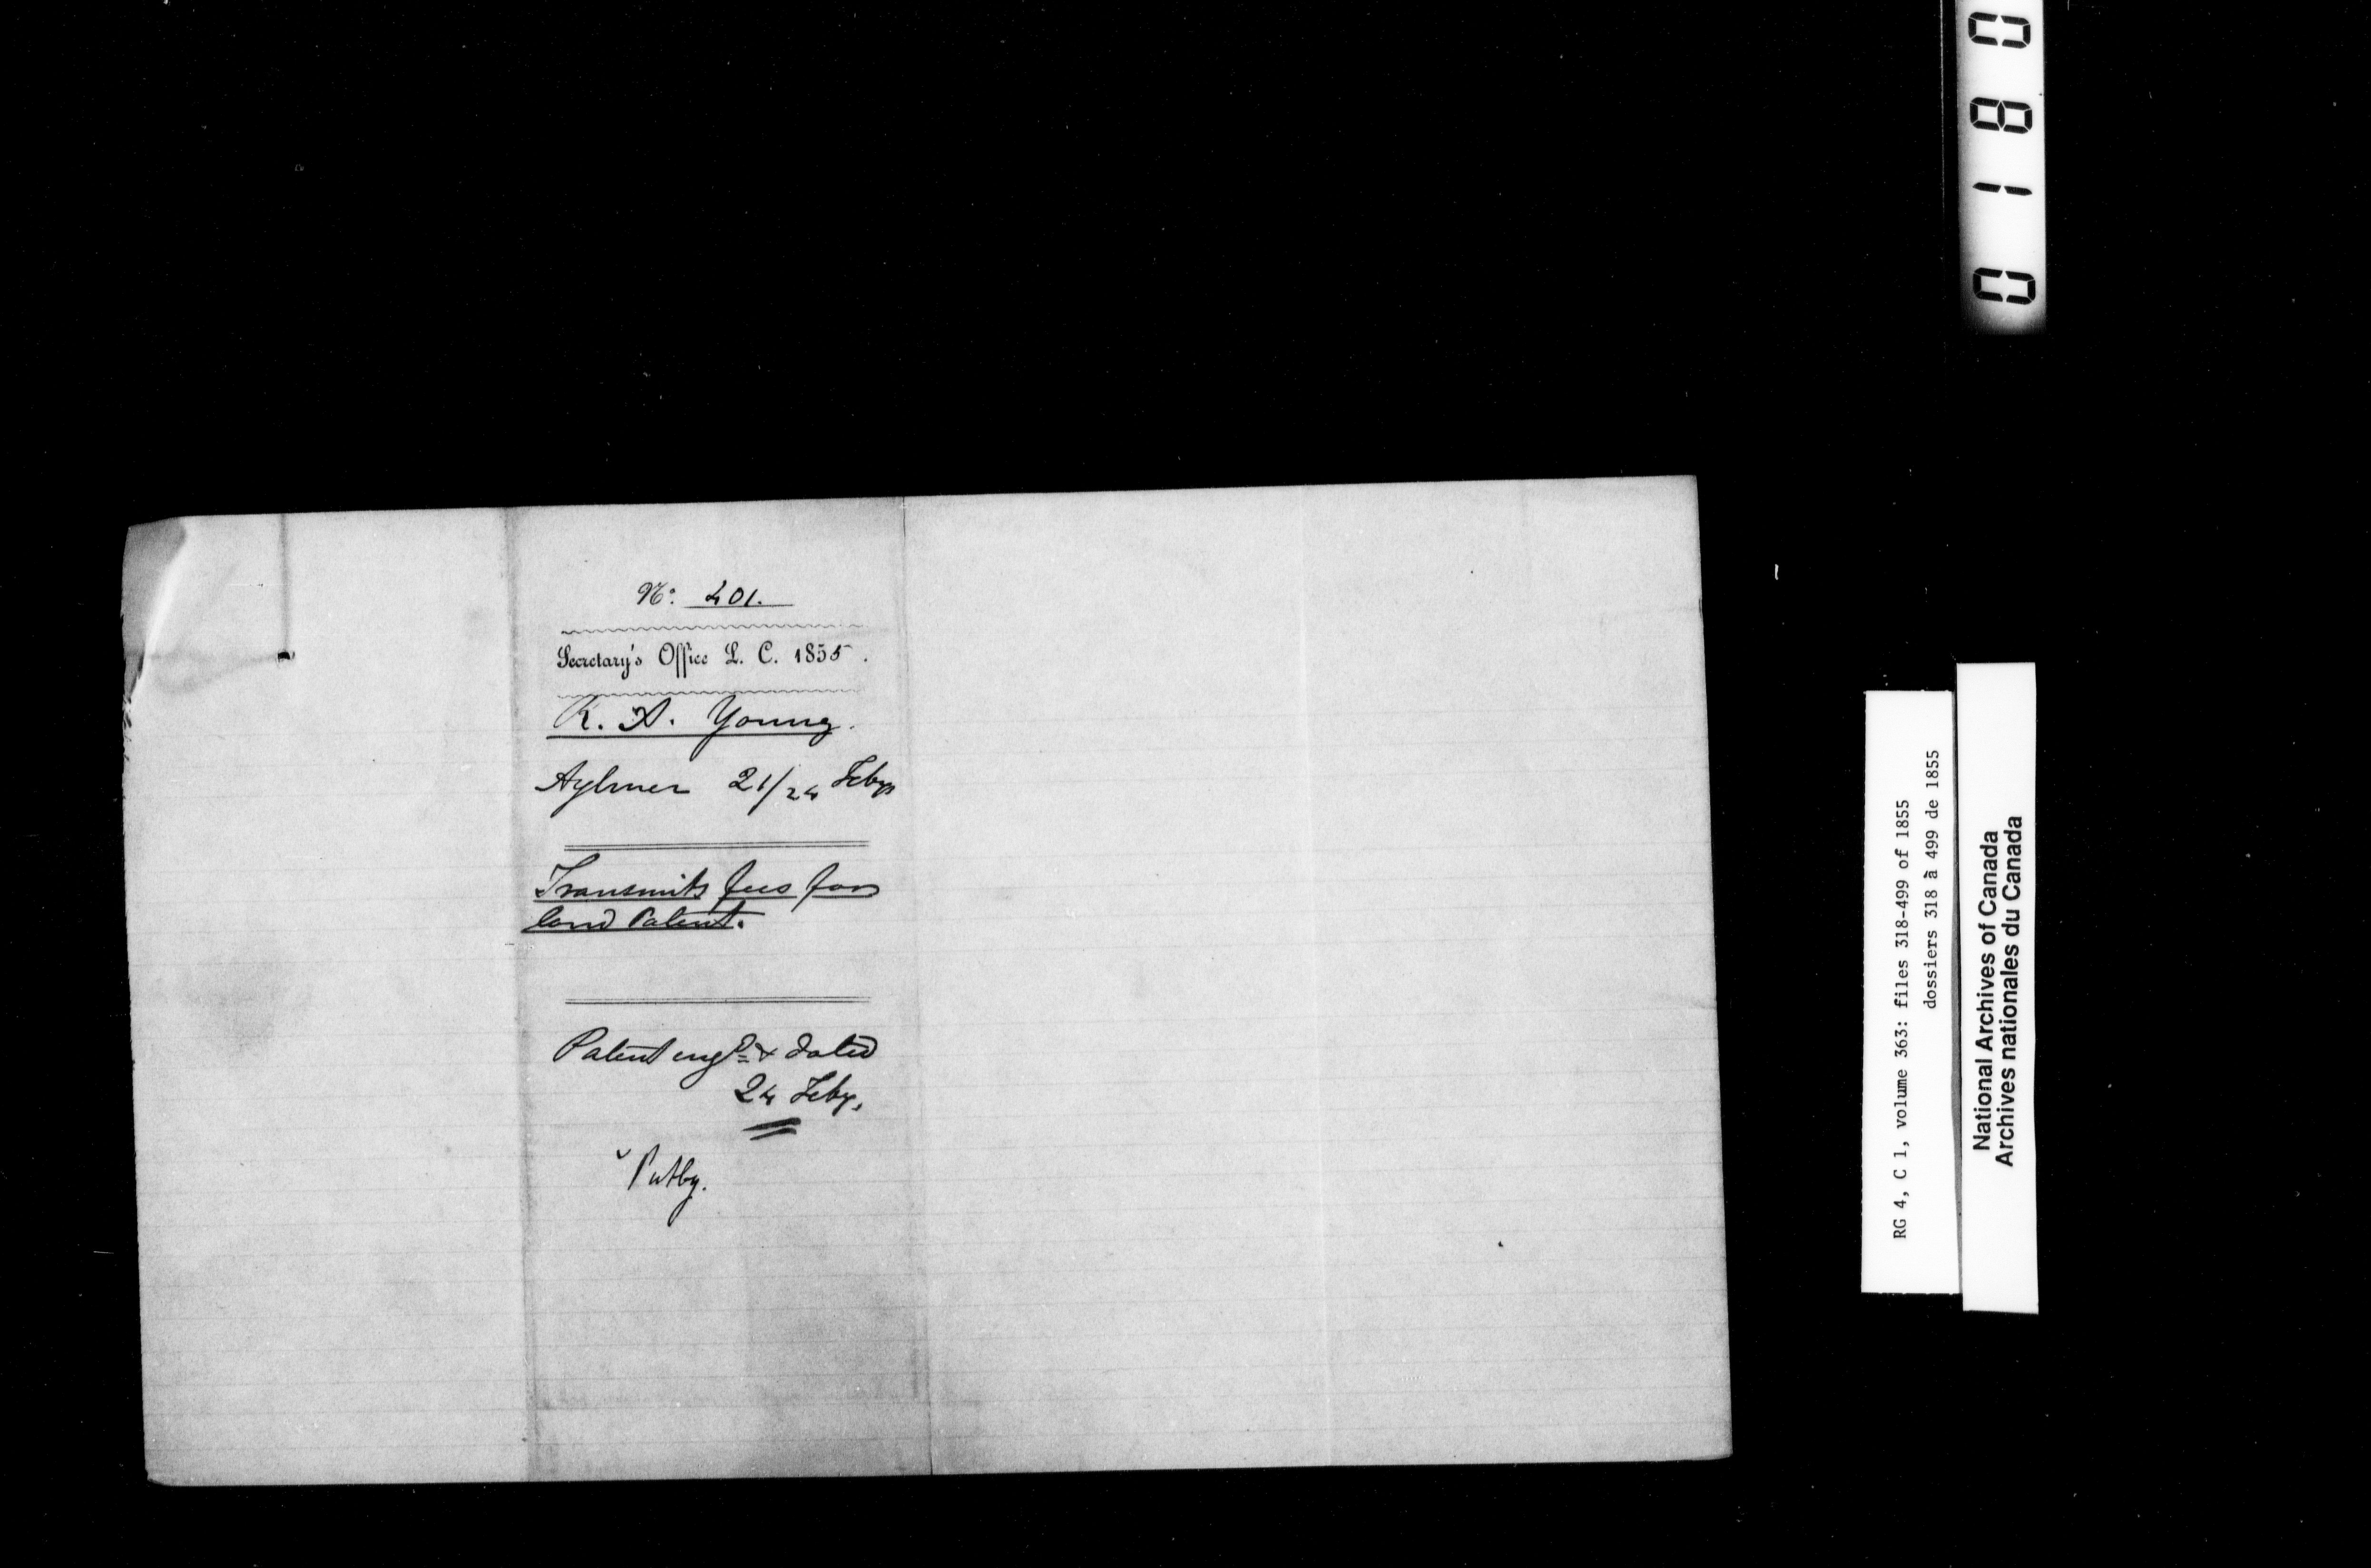 No. 401.
Secretary's Office L. C. 1855.
R. A. Young.
Aylmer 21/24 Feby
Transmits fees for
land Patent.
Patent engd & dated
24 Feby.
Putby.
0180
RG 4, C 1, volume 363: files 318-499 of 1855
dossiers 318 à 499 de 1855
National Archives of Canada
Archives nationales du Canada